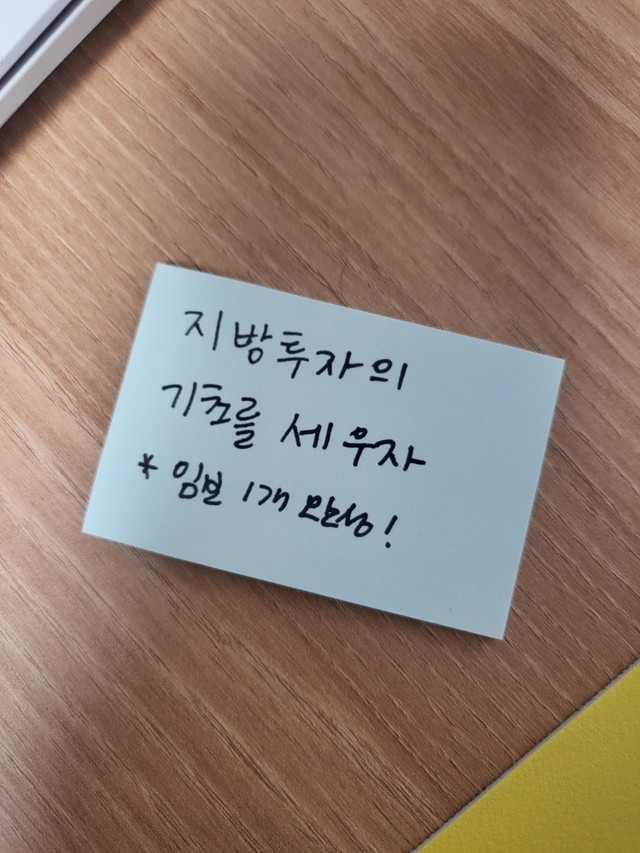 지방투자의
기초를 세우자
* 임보 1개 완성!